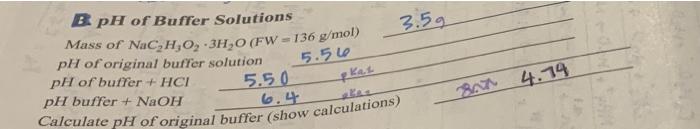 B. pH of Buffer Solutions
Mass of NaC₂H₃O₂ · 3H₂O (FW = 136 g/mol) 3.5g
pH of original buffer solution 5.56
pH of buffer + HCl 5.50 pKa1
pH buffer + NaOH 6.4 4.74
Calculate pH of original buffer (show calculations)